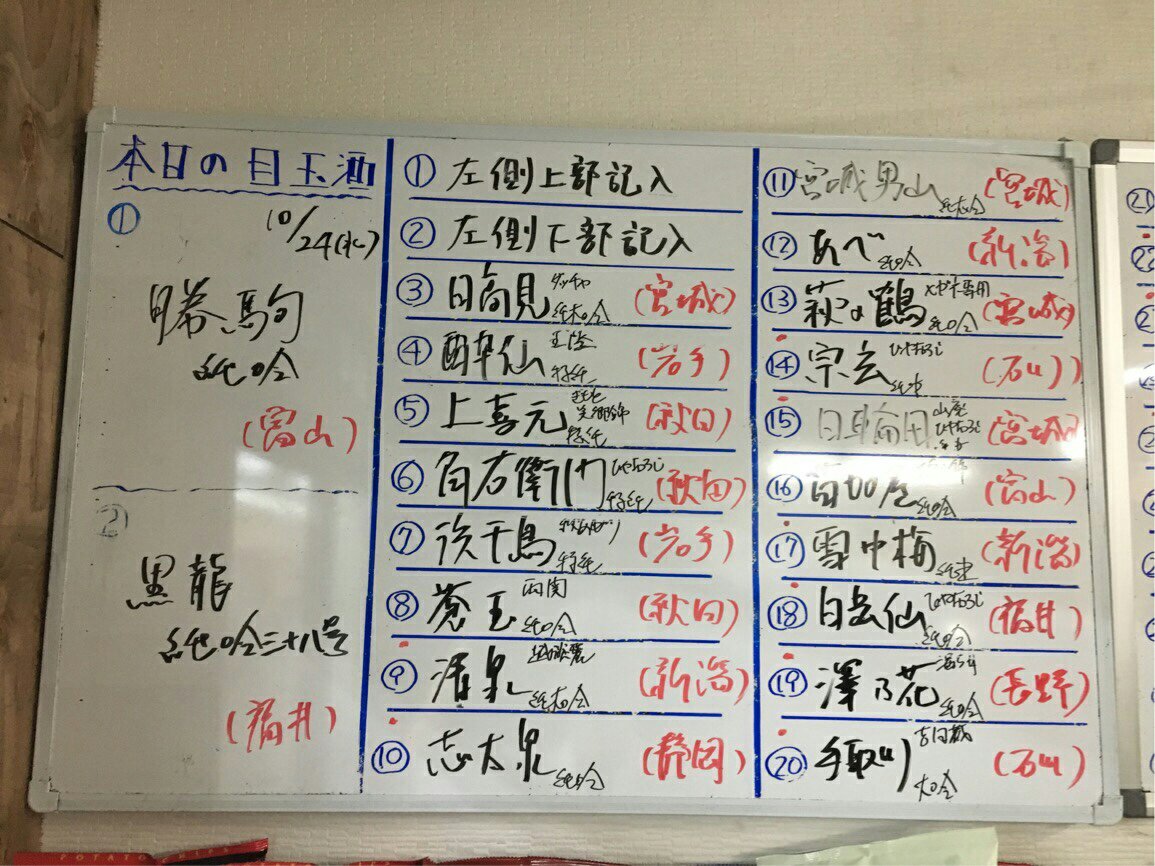 本日の目玉酒
①
10/24(水)
勝駒
純吟
(富山)
②
黒龍
純吟三十八号
(福井)
① 左側上部記入
② 左側下部記入
③ 日高見
純大吟
(宮城)
④ 酔仙
特純
(岩手)
⑤ 上喜元
特純
(秋田)
⑥ 角右衛門 ひやおろし
特純
(秋田)
⑦ 浜千鳥
特純
(岩手)
⑧ 蒼玉 両関
純吟
(秋田)
⑨ 清泉
純大吟
(新潟)
⑩ 志太泉
純吟
(静岡)
⑪ 宮城男山
純大吟
(宮城)
⑫ あべ
純吟
(新潟)
⑬ 萩の鶴 メガネ専用
純吟
(宮城)
⑭ 宗玄 ひやおろし
純米
(石川)
⑮ 日輪田 山廃
ひやおろし
(宮城)
⑯
純吟
(富山)
⑰ 雪中梅
純米
(新潟)
⑱ 白岳仙 ひやおろし
純吟
(福井)
⑲ 澤乃花
純吟
(長野)
⑳ 手取川 古同蔵
大吟
(石川)
㉑
㉒
POTATO